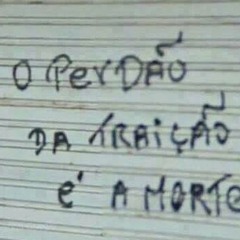 O PerDÃO
DA TRAiÇÃO
é A MORTE